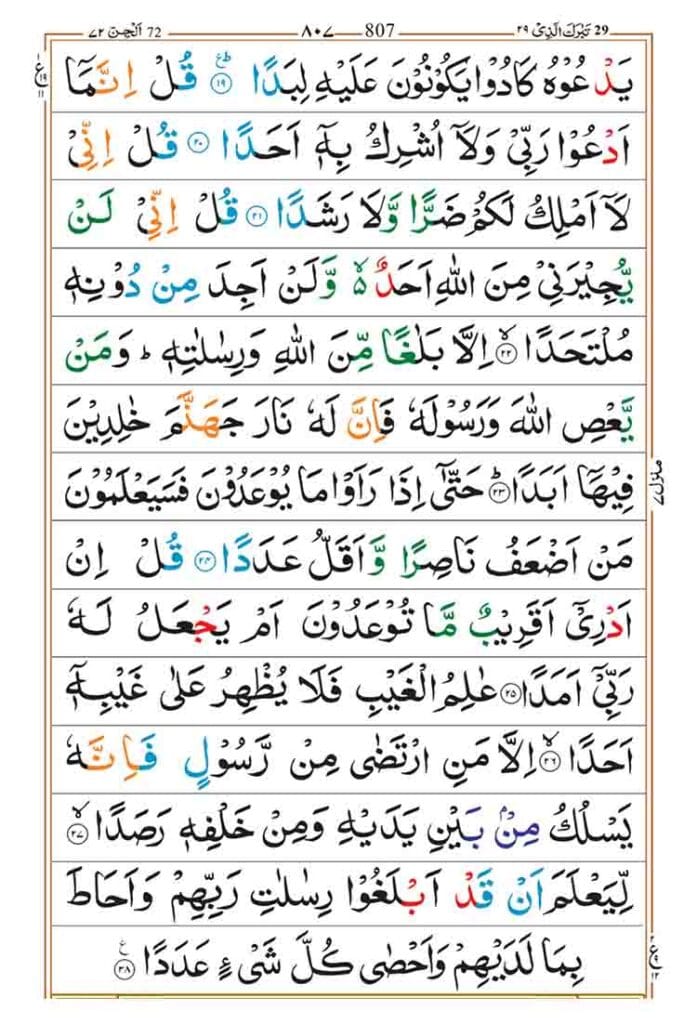 29 تَبٰرَكَ الَّذِیْ ۲۹
807 ۸۰۷
72 اَلْجِنّ ۷۲
یَدْعُوْهُ كَادُوْا یَكُوْنُوْنَ عَلَیْهِ لِبَدًا ۱۹ قُلْ اِنَّمَاۤ
اَدْعُوْا رَبِّیْ وَلَاۤ اُشْرِكُ بِهٖۤ اَحَدًا ۲۰ قُلْ اِنِّیْ
لَاۤ اَمْلِكُ لَكُمْ ضَرًّا وَّلَا رَشَدًا ۲۱ قُلْ اِنِّیْ لَنْ
یُّجِیْرَنِیْ مِنَ اللّٰهِ اَحَدٌ ۙ۬ وَّلَنْ اَجِدَ مِنْ دُوْنِهٖ
مُلْتَحَدًا ۙ۲۲ اِلَّا بَلٰغًا مِّنَ اللّٰهِ وَرِسٰلٰتِهٖ ؕ وَمَنْ
یَّعْصِ اللّٰهَ وَرَسُوْلَهٗ فَاِنَّ لَهٗ نَارَ جَهَنَّمَ خٰلِدِیْنَ
فِیْهَاۤ اَبَدًا ؕ۲۳ حَتّٰۤی اِذَا رَاَوْا مَا یُوْعَدُوْنَ فَسَیَعْلَمُوْنَ
مَنْ اَضْعَفُ نَاصِرًا وَّاَقَلُّ عَدَدًا ۲۴ قُلْ اِنْ
اَدْرِیْۤ اَقَرِیْبٌ مَّا تُوْعَدُوْنَ اَمْ یَجْعَلُ لَهٗ
رَبِّیْۤ اَمَدًا ۲۵ عٰلِمُ الْغَیْبِ فَلَا یُظْهِرُ عَلٰی غَیْبِهٖۤ
اَحَدًا ۙ۲۶ اِلَّا مَنِ ارْتَضٰی مِنْ رَّسُوْلٍ فَاِنَّهٗ
یَسْلُكُ مِنْۢ بَیْنِ یَدَیْهِ وَمِنْ خَلْفِهٖ رَصَدًا ۙ۲۷
لِّیَعْلَمَ اَنْ قَدْ اَبْلَغُوْا رِسٰلٰتِ رَبِّهِمْ وَاَحَاطَ
بِمَا لَدَیْهِمْ وَاَحْصٰی كُلَّ شَیْءٍ عَدَدًا ۲۸
منزل ۷